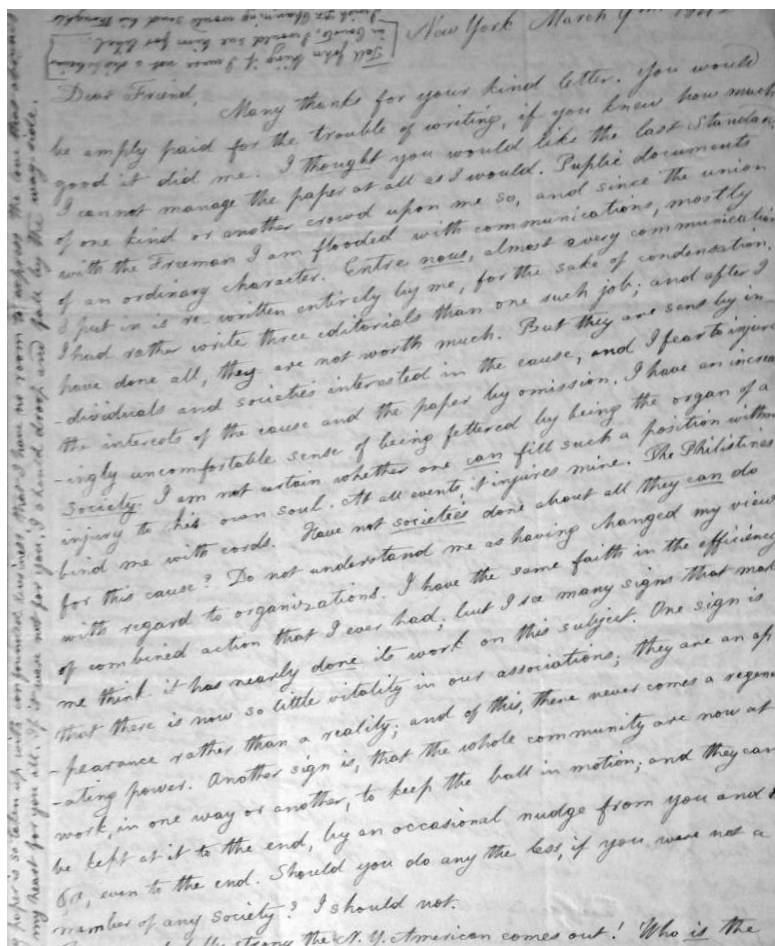 New York March 9
Dear Friend,
Many thanks for your kind letter. You would
be amply paid for the trouble of writing, if you knew how much
good it did me. I thought you would like the last Standard
I cannot manage the paper at all as I would. Public documents
of one kind or another crowd upon me so, and since the union
with the Freeman I am flooded with communications, mostly
of an ordinary character. Entre nous, almost every communication
I put in is re-written entirely by me, for the sake of condensation.
I had rather write three editorials than one such job; and after I
have done all, they are not worth much. But they are sent by in
-dividuals and societies interested in the cause, and I fear to injure
the interests of the cause and the paper by omission. I have an increa
-ingly uncomfortable sense of being fettered by being the organ of a
Society. I am not certain whether one can fill such a position without
injury to his own soul. At all events, it injures mine. The Philistines
bind me with cords. Have not societies done about all they can do
for this cause? Do not understand me as having changed my view
with regard to organizations. I have the same faith in the efficiency
of combined action that I ever had; but I see many signs that make
me think it has nearly done its work on this subject. One sign is
that there is now so little vitality in our associations; they are an ap
-pearance rather than a reality; and of this, there never comes a regener
-ating power. Another sign is, that the whole community are now at
work, in one way or another, to keep the ball in motion; and they can
be kept at it to the end, by an occasional nudge from you and
even to the end. Should you do any the less, if you were not a
member of any Society? I should not.
strong the N. Y. American comes out! Who is the
Tell John King if I were not a
in Courts, I would sue him for libel.
I wish Dr Channing would send his thoughts
paper is so taken up with confounded business that I have no room to express the love that
my heart for you all. If it were not for you, I should droop and fall by the way side.